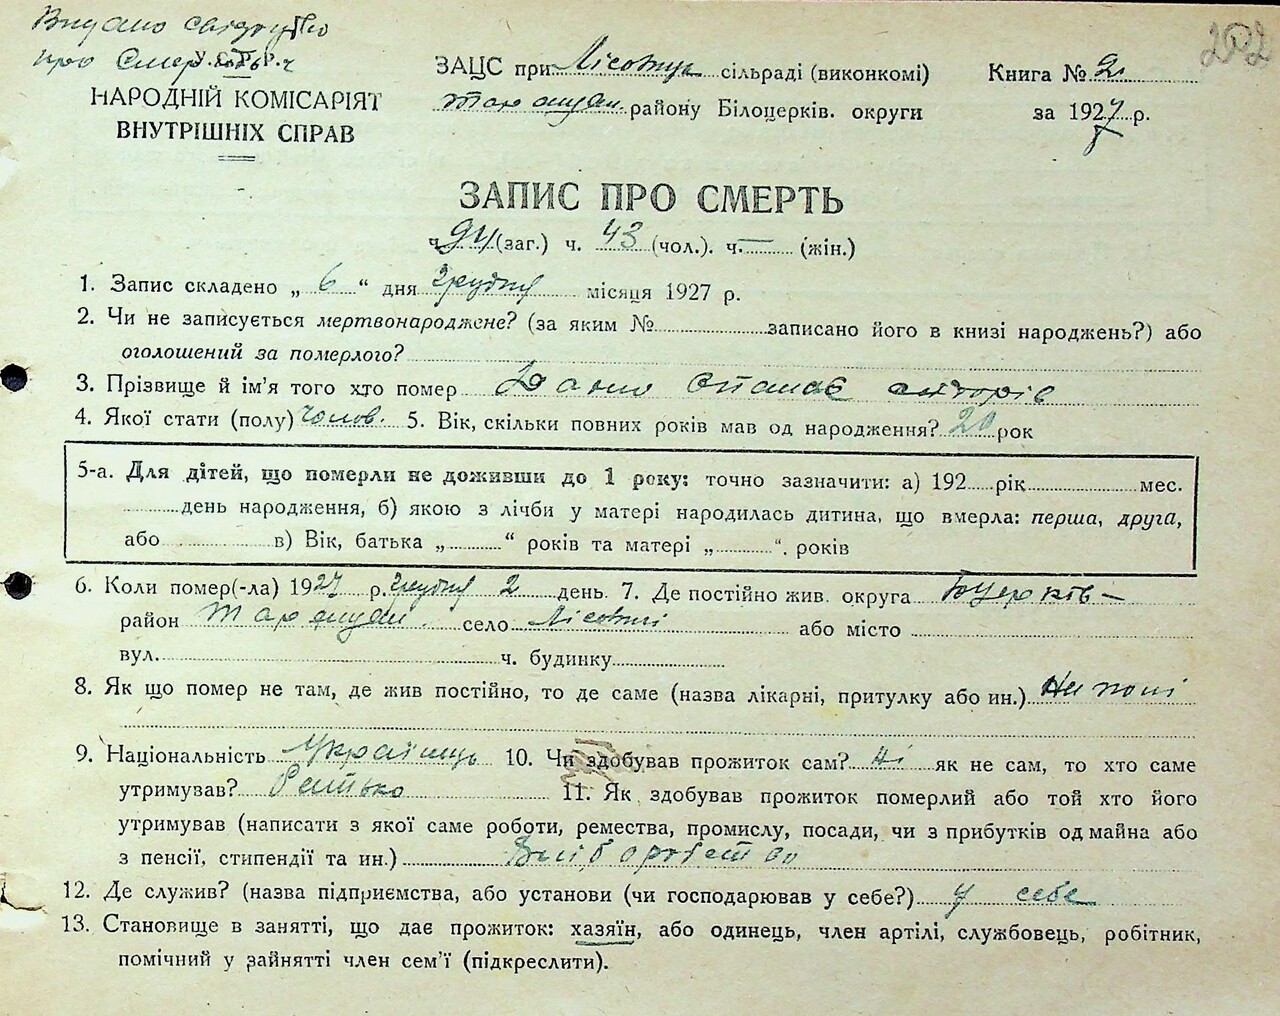 Видано свідоцтво
про Смерть
У.С.Р.Р.
НАРОДНІЙ КОМІСАРІЯТ
ВНУТРІШНІХ СПРАВ
ЗАЦС при сільраді (виконкомі)
району Білоцерків. округи
Книга № 2
за 1927 р.
202
ЗАПИС ПРО СМЕРТЬ
ч. 94 (заг.) ч. 43 (чол.). ч. — (жін.)
1. Запис складено „ 6 “ дня Грудня місяця 1927 р.
2. Чи не записується мертвонароджене? (за яким № записано його в книзі народжень?) або
оголошений за померлого?
3. Прізвище й ім'я того хто помер
4. Якої стати (полу) Чолов. 5. Вік, скільки повних років мав од народження? 20 рок
5-а. Для дітей, що померли не доживши до 1 року: точно зазначити: а) 192 рік мес.
день народження, б) якою з лічби у матері народилась дитина, що вмерла: перша, друга,
або в) Вік, батька „ “ років та матері „ “. років
6. Коли помер(-ла) 1927 р. Грудня 2 день. 7. Де постійно жив. округа
район село або місто
вул. ч. будинку
8. Як що помер не там, де жив постійно, то де саме (назва лікарні, притулку або ин.) На полі
9. Національність Українець 10. Чи здобував прожиток сам? Ні як не сам, то хто саме
утримував? Батько 11. Як здобував прожиток померлий або той хто його
утримував (написати з якої саме роботи, ремества, промислу, посади, чи з прибутків од майна або
з пенсії, стипендії та ин.) Хліборобство
12. Де служив? (назва підприємства, або установи (чи господарював у себе?) У себе
13. Становище в занятті, що дає прожиток: хазяїн, або одинець, член артілі, службовець, робітник,
помічний у зайнятті член сем'ї (підкреслити).